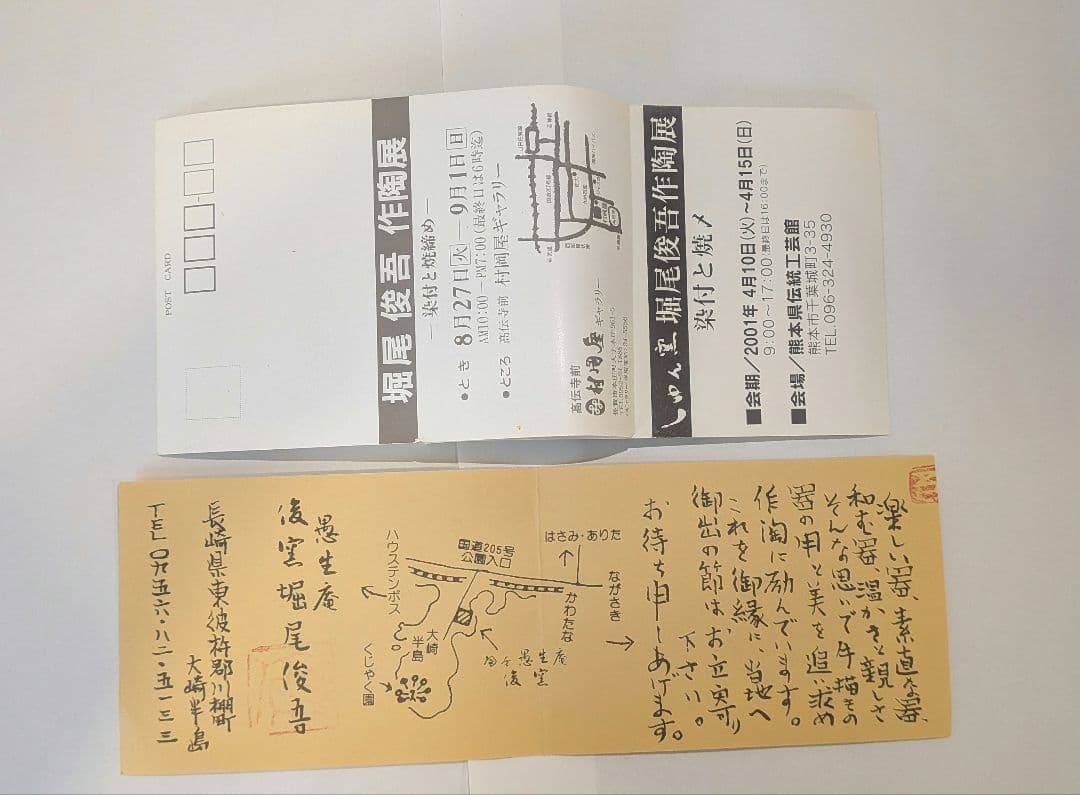 POST CARD
堀尾 俊吾 作陶展
―染付と焼締め―
●とき 8月27日火―9月1日日
AM10:00―PM7:00(最終日は6時迄)
●ところ 高伝寺前 村岡屋ギャラリー
高伝寺前
村岡屋 ギャラリー
しゅん窯 堀尾俊吾作陶展
染付と焼〆
■会期/2001年 4月10日(火)~4月15日(日)
9:00~17:00(最終日は16:00まで)
■会場/熊本県伝統工芸館
熊本市千葉城町3-35
TEL.096-324-4930
楽しい器、素直な器
和む器、温かさと親しさ
そんな思いで手描きの
器の用と美を追い求め
作陶に励んでいます。
これを御縁に当地へ
御出の節はお立寄り
下さい。
お待ち申しあげます。
はさみ・ありた
ながさき
かわたな
国道205号
公園入口
ハウステンボス
大崎
半島
くじゃく園
愚生庵
俊窯
愚生庵
俊窯 堀尾俊吾
長崎県東彼杵郡川棚町
大崎半島
TEL〇九五六・八二・五一三三